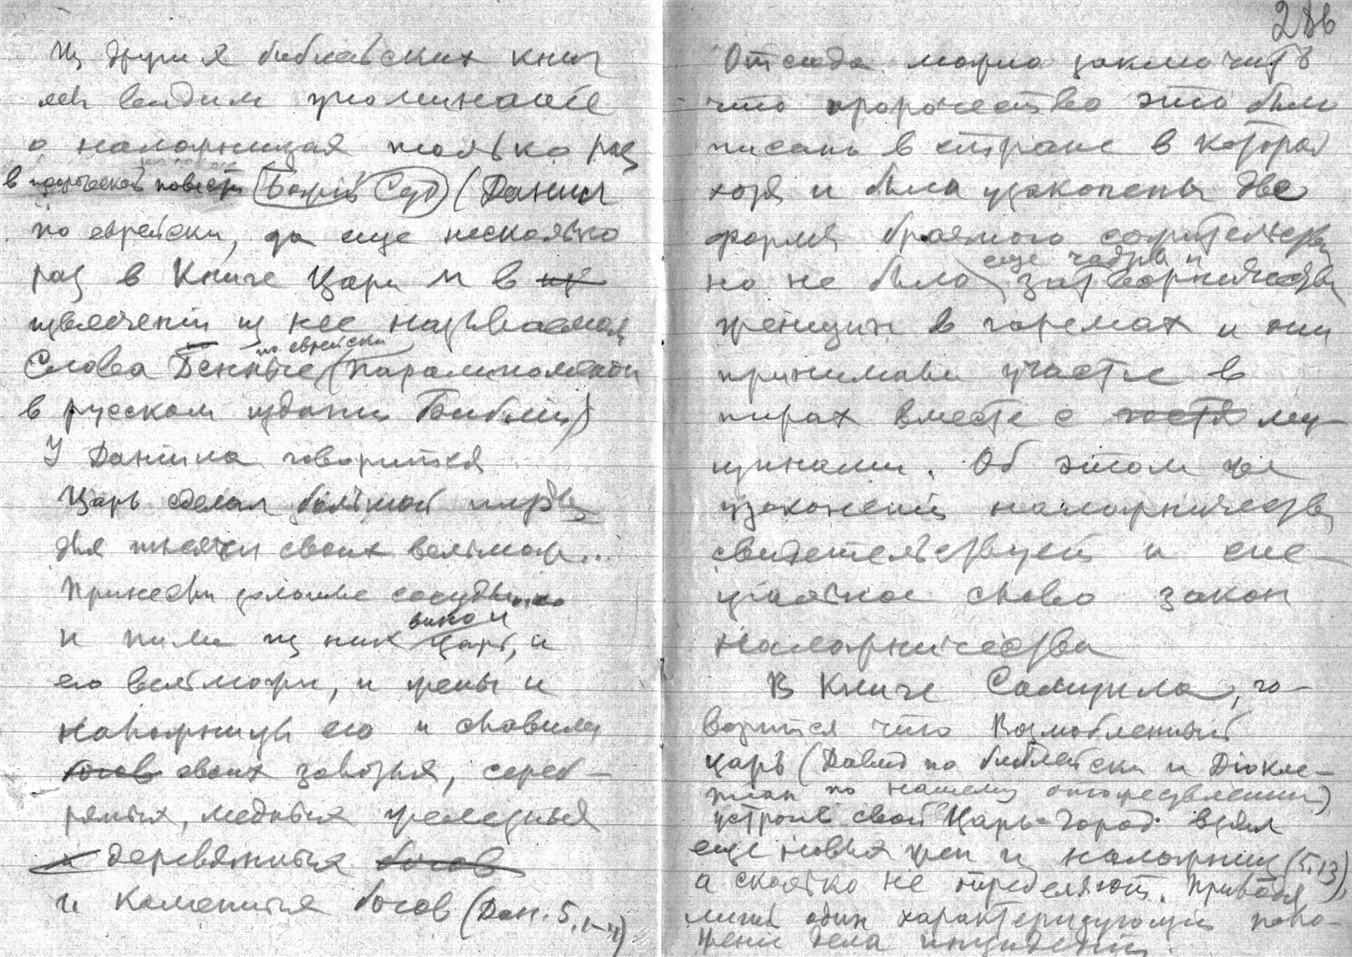 Из других библейских книг
мы видим упоминание
о наложницах только раз
в пророческой повести Божий Суд (Данил
по еврейски, да еще несколько
раз в Книге Цари и в
извлечении из нее называемой
Слова Денные (Паралипоменон
по еврейски
в русском издании Библии)
У Даниила говорится
Царь сделал большой пир
для тысячи своих вельмож...
Принесли золотые сосуды
и пили из них вино и царь, и
его вельможи, и жены и
наложницы его и славили
богов своих золотых, сереб-
ряных, медных железных
и деревянных богов
и каменных богов (Дан. 5, 1-4)
286
Отсюда можно заключить
что пророчество это было
писано в стране в которой
хотя и были узаконены две
формы брачного сожительства
но не было еще чадры и затворничества
женщин в гаремах и они
принимали участие в
пирах вместе с гостя му-
щинами. Об этом же
узаконении наложничества
свидетельствует и спе-
циальное слово закон
наложничества
В Книге Самуила, го-
ворится что Возлюбленный
царь (Давид по библейски и Диокле-
тиан по нашему отожествлению)
устроив свой Царь-Город взял
еще новых жен и наложниц (5,13),
а сколько не определяют. Приводя
лишь один характеризующий поло-
жение дела